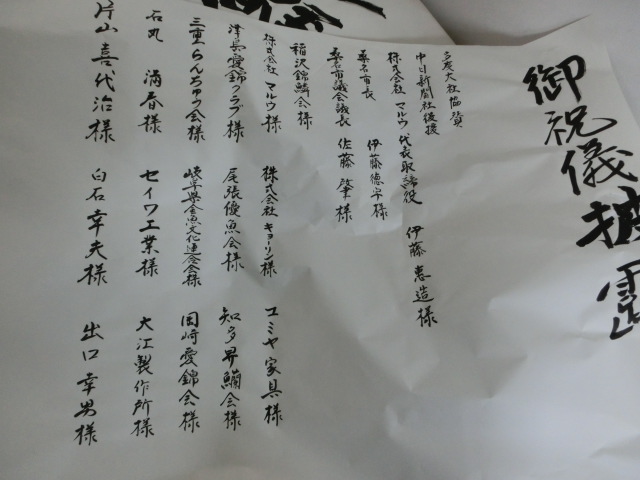 御祝儀披露
多度大社協賛
中日新聞社後援
株式会社 マルウ 代表取締役 伊藤惠造様
桑名市長 伊藤徳宇様
桑名市議会議長 佐藤肇様
稲沢錦鱗会様
株式会社 マルウ様 株式会社 キョーリン様 ユミヤ家具様
津長愛錦クラブ様 尾張優魚会様 知多昇鱗会様
三重らんちゅう会様 岐阜県金魚文化連合会様 岡崎愛錦会様
石丸 満春様 セイワ工業様 大江製作所様
片山喜代治様 白石幸夫様 出口幸男様